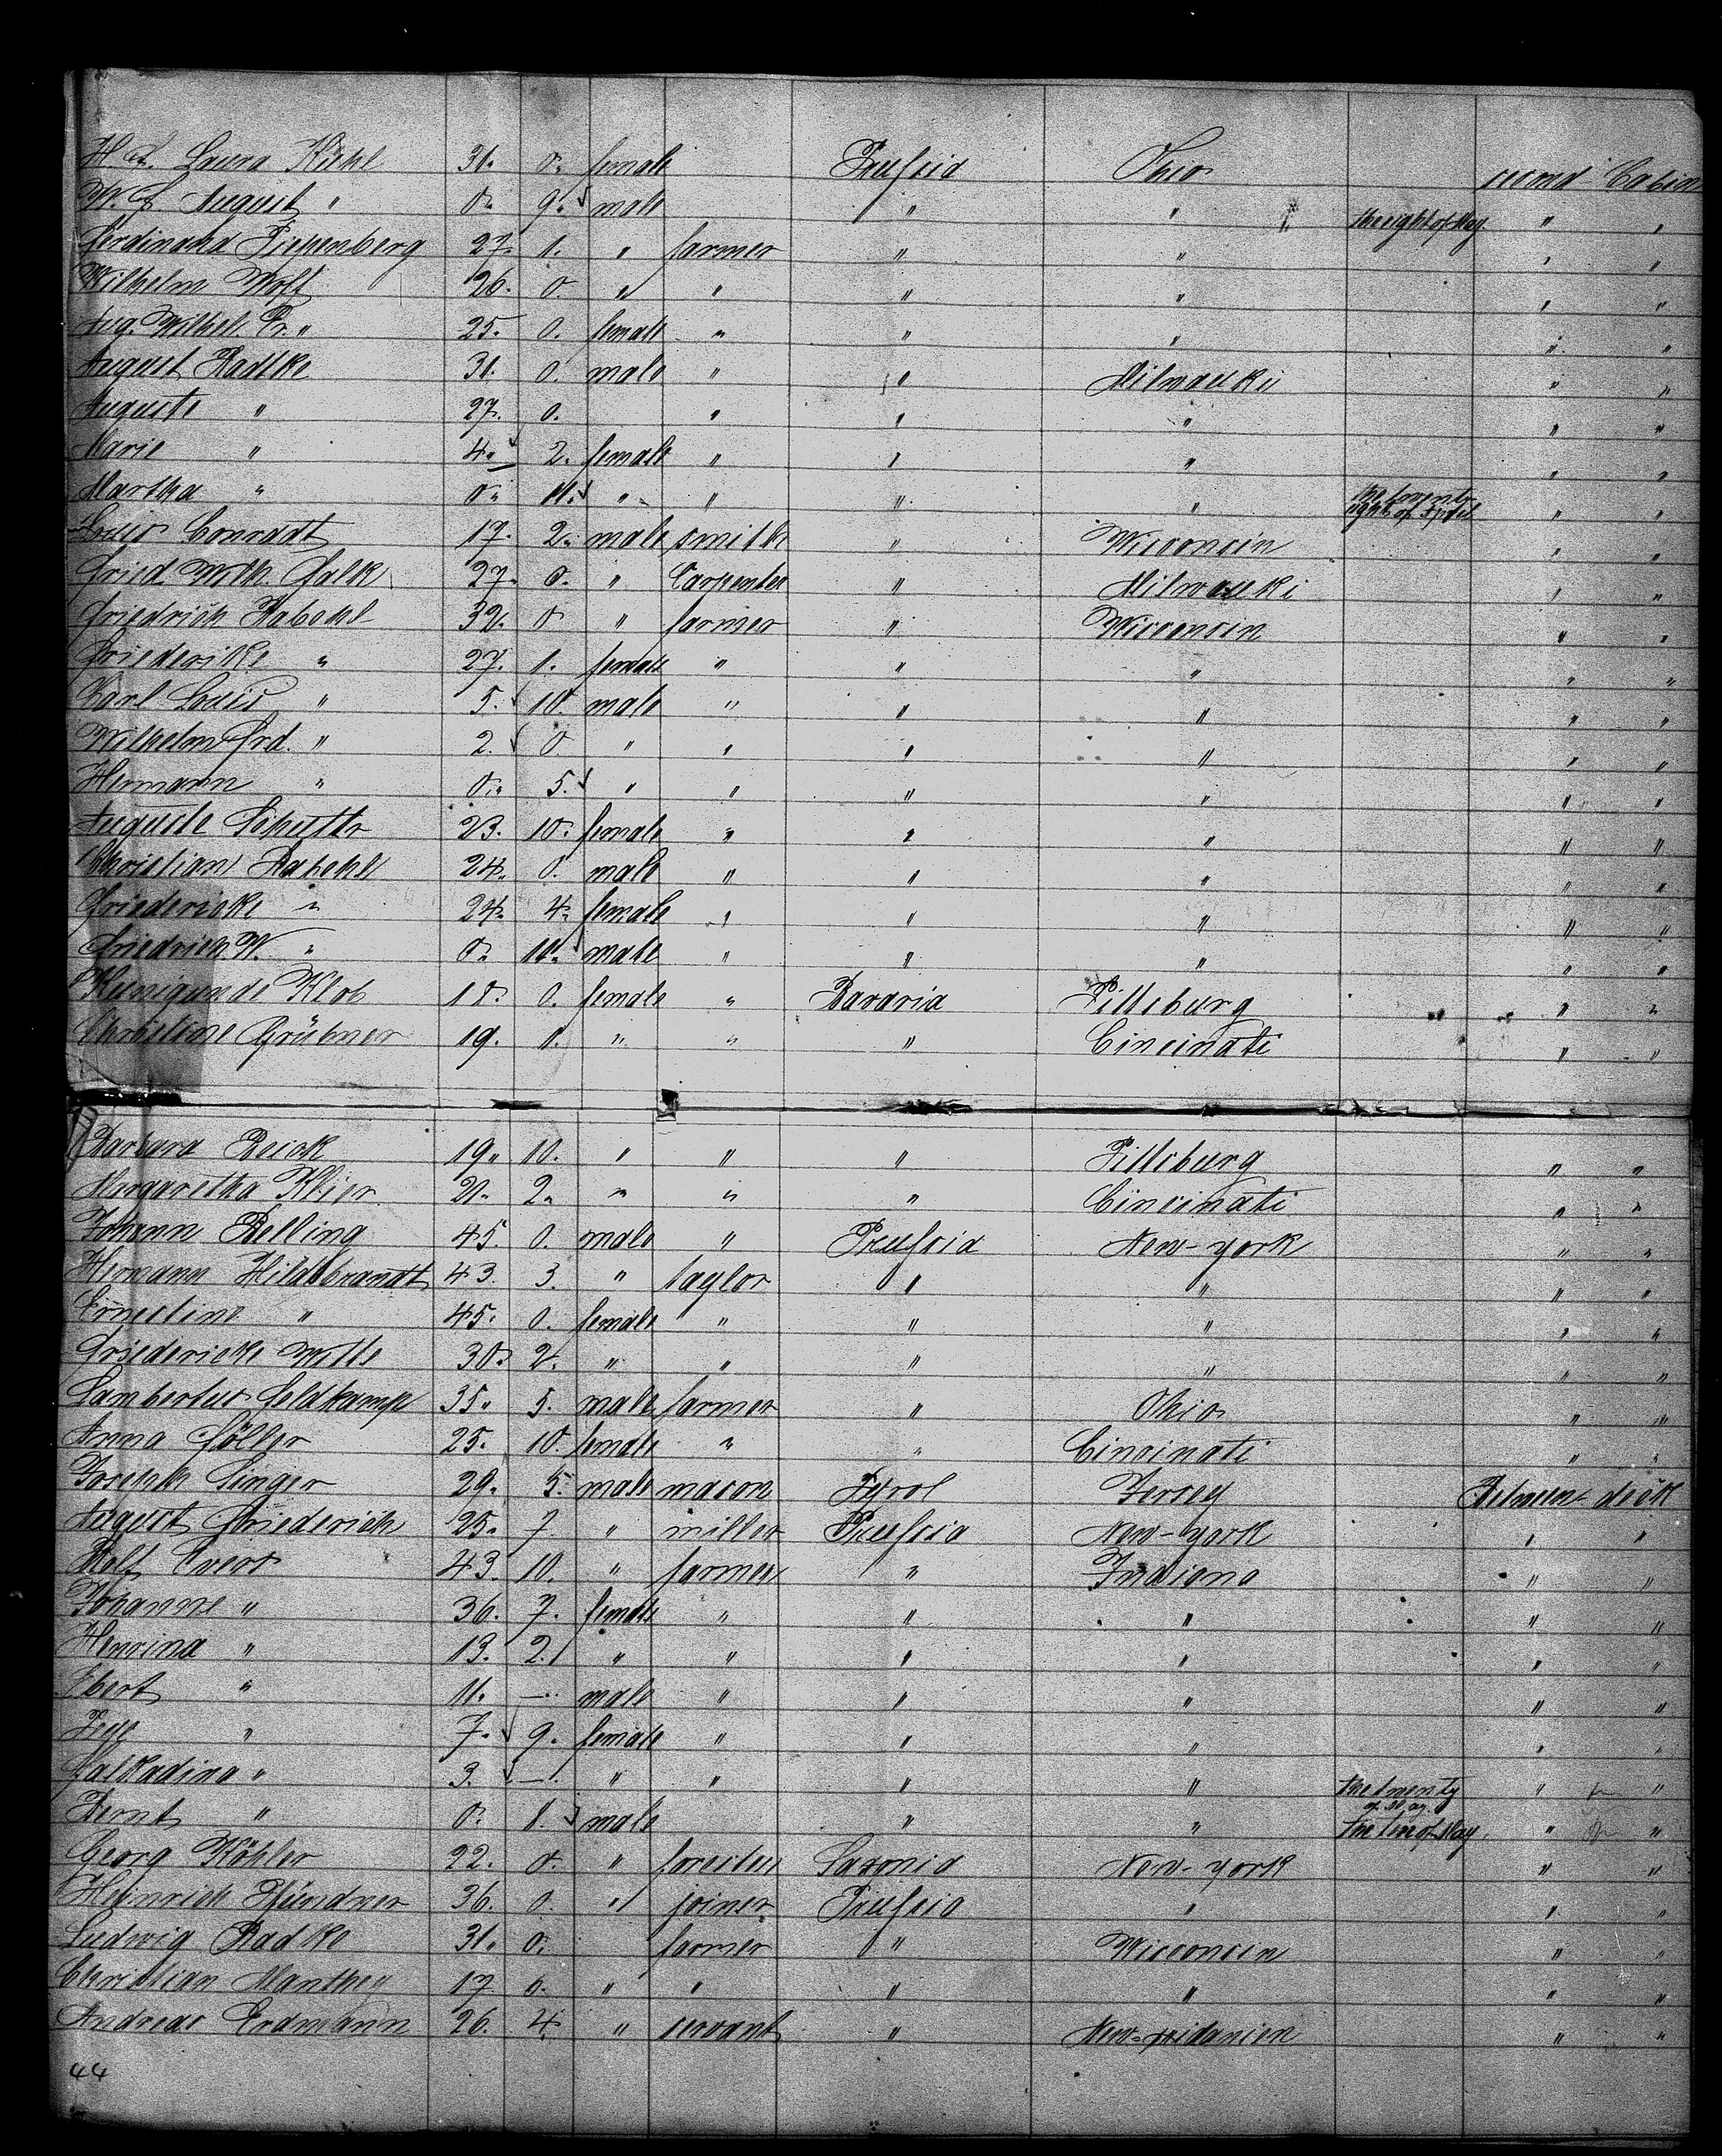 H. A. Laura Kühl 31. 0. female Preussia Ohio second Cabin
W. F. August " 0. 9. male " " the eight of May " "
Ferdinand Piepenberg 27. 1. " farmer " " " "
Wilhelm Wolf 26. 0. " " " " " "
Aug. Wilhel. Er. " 25. 0. female " " " " "
August Radtke 31. 0. male " " Milwaukii " "
Auguste " 27. 0. " " " " "
Marie " 4. 2. female " " " " "
Martha " 0. 11. " " " " the twenty eight of April " "
Louis Conradt 17. 2. male smith " Wisconsin " "
Fried. Wilh. Falk 27. 0. " Carpenter " Milwauki " "
Friedrich Rabehl 32. 0 " farmer " Wisconsin " "
Friedericke " 27. 1. female " " " " "
Carl Louis " 5. 10. male " " " " "
Wilhelm Frd. " 2. 0. " " " " " "
Hermann " 0. 5. " " " " " "
Auguste Liputtr 23. 10. female " " " " "
Christian Rabehl 24. 0. male " " " " "
Friedericke " 24. 4. female " " " " "
Friedrich W. " 0. 10. male " " " " "
Kunigunde Klob 18. 0. female " Bavaria Pittsburg " "
Christine Grübner 19. 1. " " " Cincinati " "
Barbara Beick 19. 10. " " " Pittsburg " "
Margaretha Klier 21. 2. " " " Cincinati " "
Johann Belling 45. 0. male " Preussia New-york " "
Hermann Hildebrandt 43. 3. " taylor " " " "
Ernestine " 45. 0. female " " " " "
Friedericke Witte 30. 2. " " " " " "
Lambertus Feldkamp 35. 5. male farmer " Ohio " "
Anna Föller 25. 10. female " " Cincinati " "
Joseph Singer 29. 5. male mason Tyrol Jersey Between deck
August Friederich 25. 7 " miller Preussia New-york " "
Rolf Evers 43. 10. " farmer " Indiana " "
Johanne " 36. 7. female " " " " "
Henrina " 13. 2. " " " " " "
Ebert " 11. — male " " " " "
" 7. 9. female " " " " "
" 3. — " " " " the twenty of May " "
Bernt " 0. 1. male " " the ten of May " "
Georg Köhler 22. 0. " forester Saxonia New-york " "
Heinrich Hündner 36. 0. " joiner Preussia " " "
Ludwig Radke 31. 0. farmer " Wisconsin " "
Christian Manthey 17. 0. " " " " " "
Andreas Erdmann 26. 4. " servant " " "
44